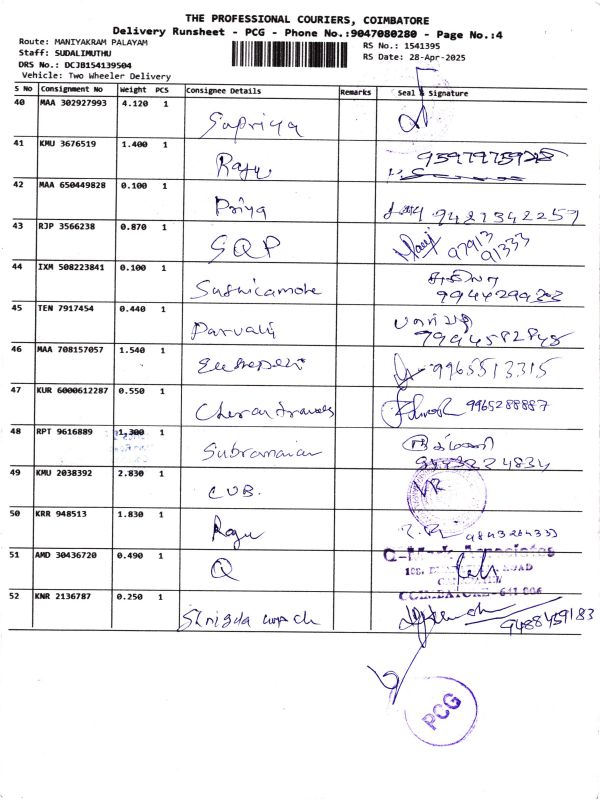 THE PROFESSIONAL COURIERS, COIMBATORE
Delivery Runsheet - PCG - Phone No.:9047080280 - Page No.:4
Route: MANIYAKRAM PALAYAM
RS No.: 1541395
Staff: SUDALIMUTHU
RS Date: 28-Apr-2025
DRS No.: DCJB154139504
Vehicle: Two Wheeler Delivery
S No Consignment No Weight PCS Consignee Details Remarks Seal & Signature
40 MAA 302927993 4.120 1 Supriya
41 KMU 3676519 1.400 1 Raju
42 MAA 650449828 0.100 1 Priya 9421342259
43 RJP 3566238 0.870 1 SQP 97913 91333
44 IXM 508223841 0.100 1
45 TEN 7917454 0.440 1 Parvati 7994582848
46 MAA 708157057 1.540 1 9965513315
47 KUR 6000612287 0.550 1 Cheran travels 9965288887
48 RPT 9616889 1.300 1 Subramanian
49 KMU 2038392 2.830 1 CUB. VR
50 KRR 948513 1.830 1 Raju
51 AMD 30436720 0.490 1 Q
ROAD
COIMBATORE - 641 006
52 KNR 2136787 0.250 1 9488459183
PCG